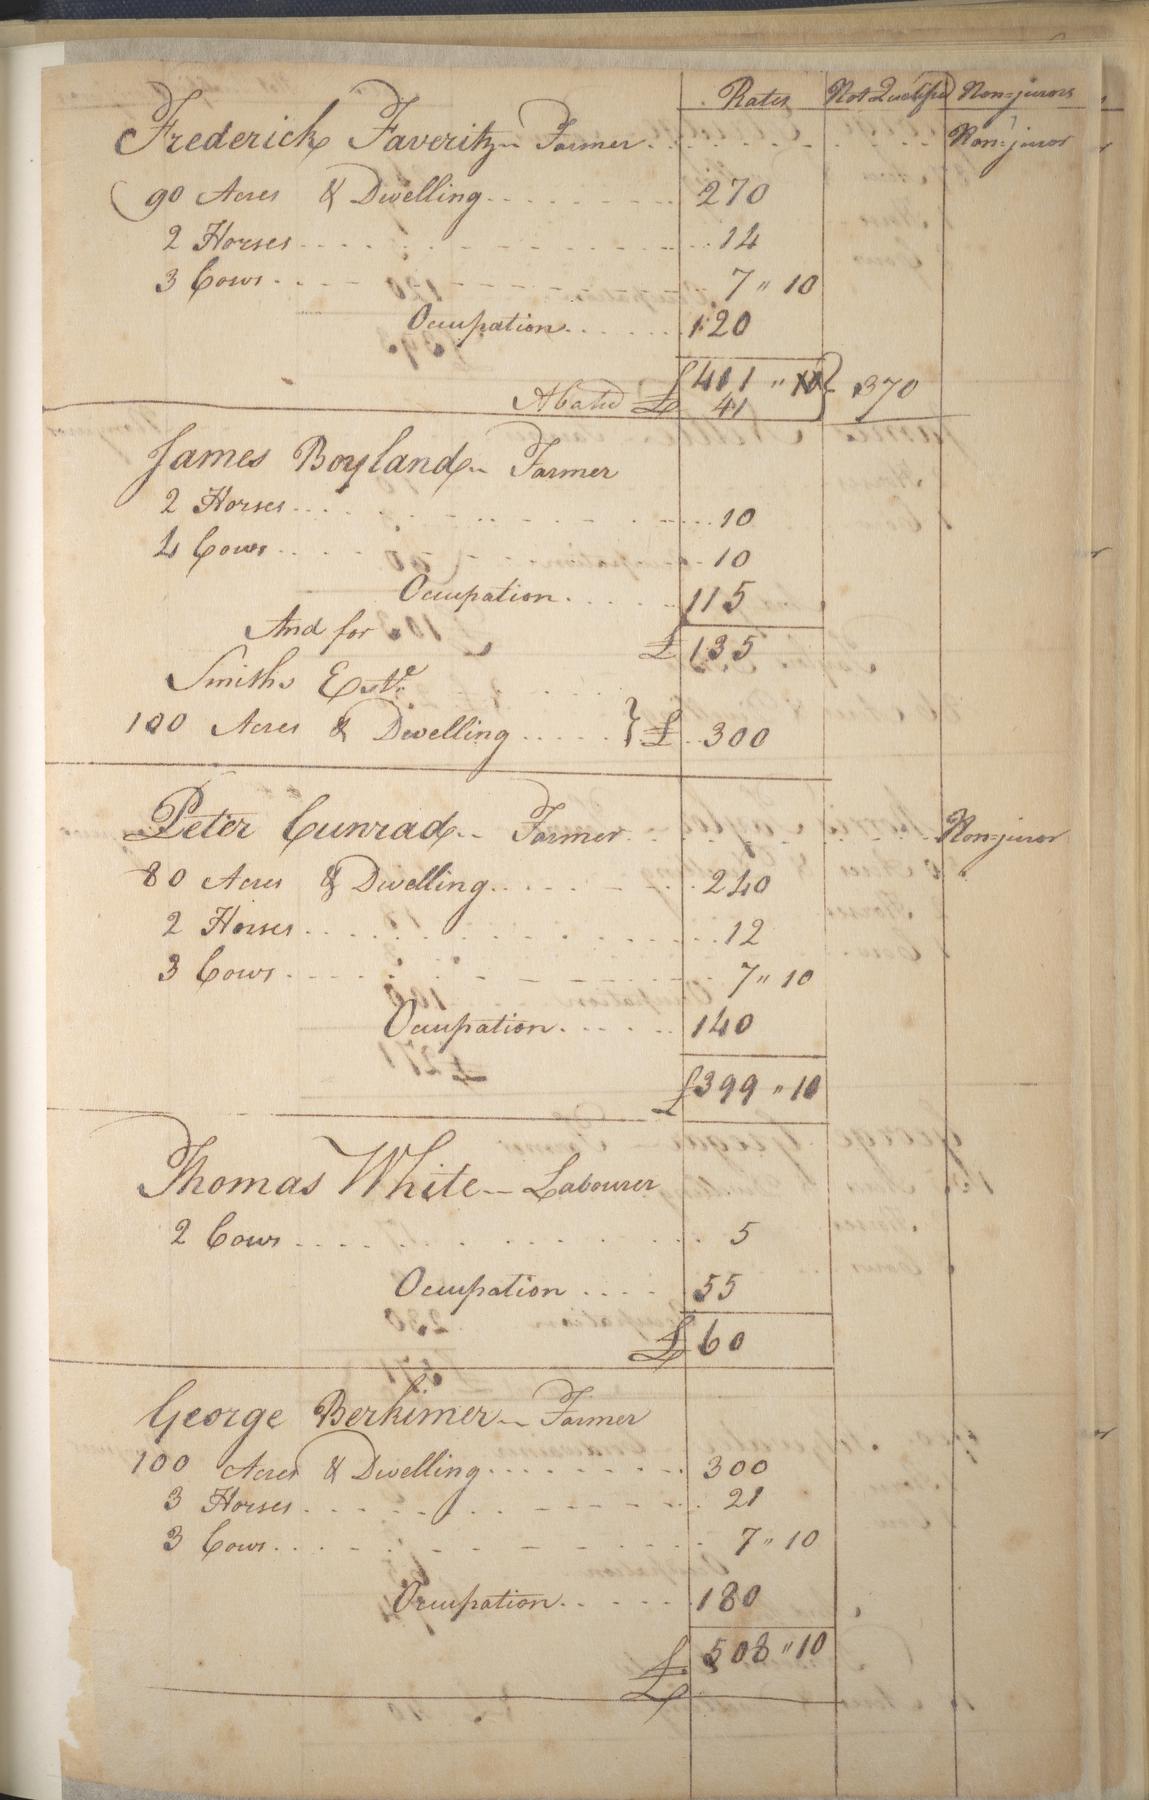 Rates Not Qualified Non-jurors
Frederick Faveritz - Farmer Non-juror
90 Acres & Dwelling 270
2 Horses 14
3 Cows 7 " 10
Occupation 120
£ 411 " 10
Abated £ 41 370
James Boyland - Farmer
2 Horses 10
4 Cows 10
Occupation 115
And for £ 135
Smiths Este
100 Acres & Dwelling £ 300
Peter Cunrad - Farmer Non-juror
80 Acres & Dwelling 240
2 Horses 12
3 Cows 7 " 10
Occupation 140
£ 399 " 10
Thomas White - Labourer
2 Cows 5
Occupation 55
£ 60
George Berkimer - Farmer
100 Acres & Dwelling 300
3 Horses 21
3 Cows 7 " 10
Occupation 180
£ 508 " 10